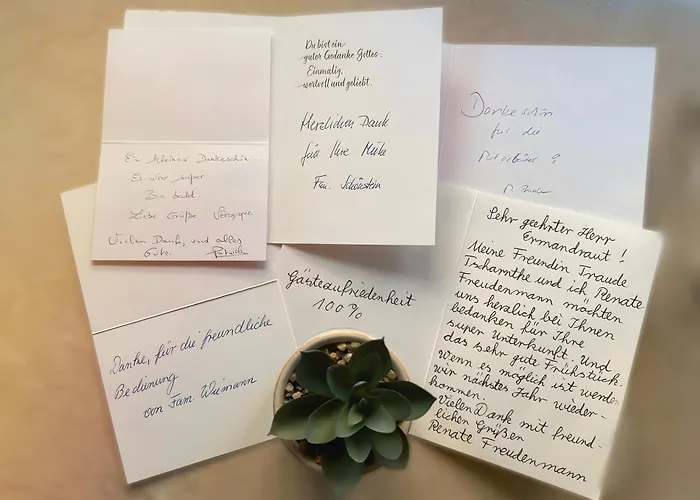 Ein kleiner Dankeschön
Es war super
Bis bald
Liebe Grüße
Vielen Dank, und alles
Gute.
Du bist ein
guter Gedanke Gottes.
Einmalig,
wertvoll und geliebt.
Herzlichen Dank
für Ihre Mühe
Fam. Schönstein
Dankeschön
für die
Mitarbeiter
Danke, für die freundliche
Bedinung
von Fam.
Gästezufriedenheit
100%
Sehr geehrter Herr
Ermandraut!
Meine Freundin Traude
Tschamtke und ich Renate
Freudenmann möchten
uns herzlich bei Ihnen
bedanken für Ihre
super Unterkunft. Und
das sehr gute Frühstück.
wenn es möglich ist werden
wir nächstes Jahr wieder-
kommen.
Vielen Dank mit freund-
lichen Grüßen
Renate Freudenmann